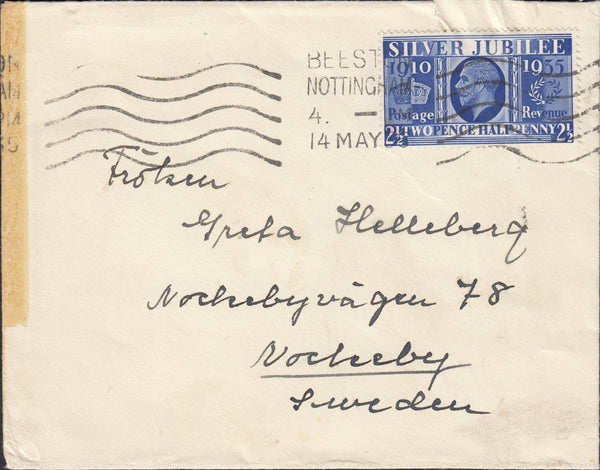 BEESTON
NOTTINGHAM
4. –
14 MAY
SILVER JUBILEE
1910 1935
Postage Revenue
2½ TWO PENCE HALFPENNY 2½
Fröken
Greta Helleberg
Nockebyvägen 78
Nockeby
Sweden